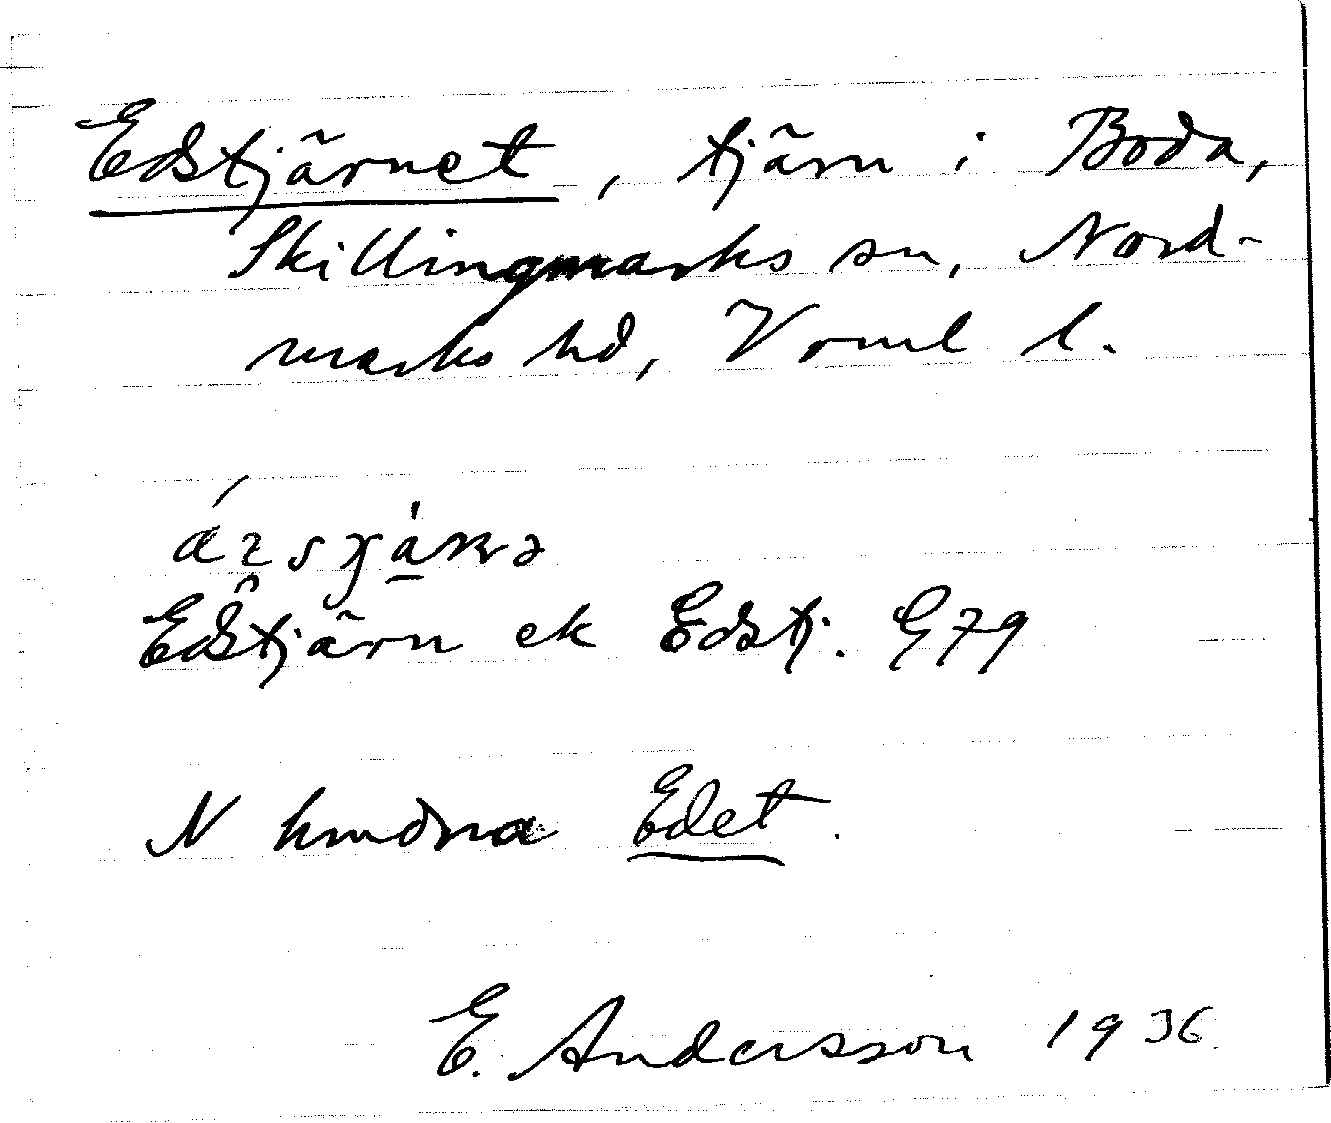 Edstjärnet, tjärn i Boda,
Skillingmarks sn, Nord-
marks hd, Vrml l.
Edstjärn ek Edstj. G79
N hmdna Edet.
E. Andersson 1936